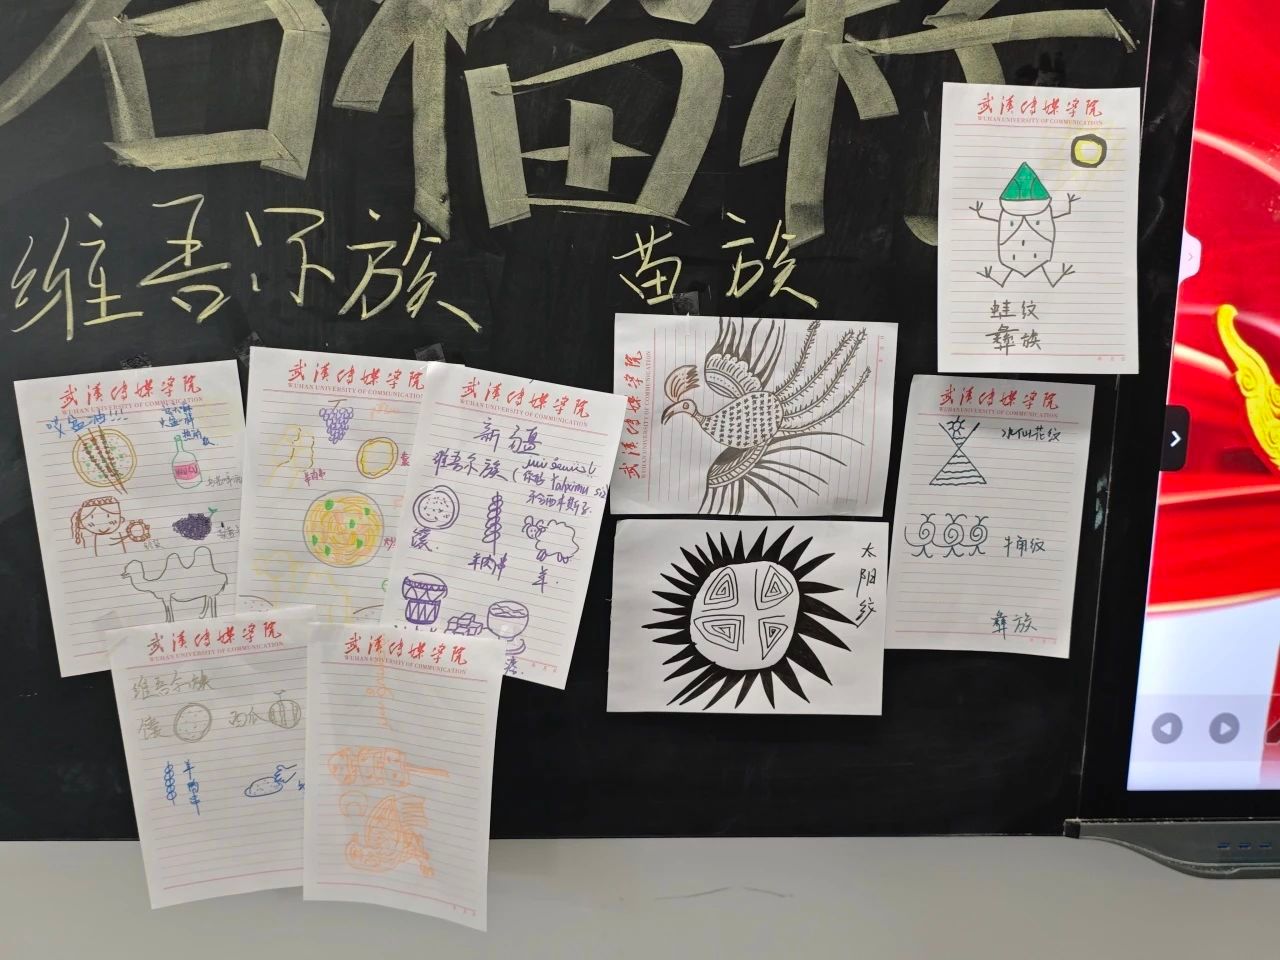 石榴籽
维吾尔族
苗族
武汉传媒学院
WUHAN UNIVERSITY OF COMMUNICATION
蛙纹
彝族
武汉传媒学院
WUHAN UNIVERSITY OF COMMUNICATION
武汉传媒学院
WUHAN UNIVERSITY OF COMMUNICATION
羊肉串
武汉传媒学院
WUHAN UNIVERSITY OF COMMUNICATION
新疆
维吾尔族
馕
羊肉串
羊
武汉传媒学院
太阳纹
武汉传媒学院
WUHAN UNIVERSITY OF COMMUNICATION
水仙花纹
牛角纹
彝族
武汉传媒学院
WUHAN UNIVERSITY OF COMMUNICATION
维吾尔族
馕
西瓜
羊肉串
武汉传媒学院
WUHAN UNIVERSITY OF COMMUNICATION